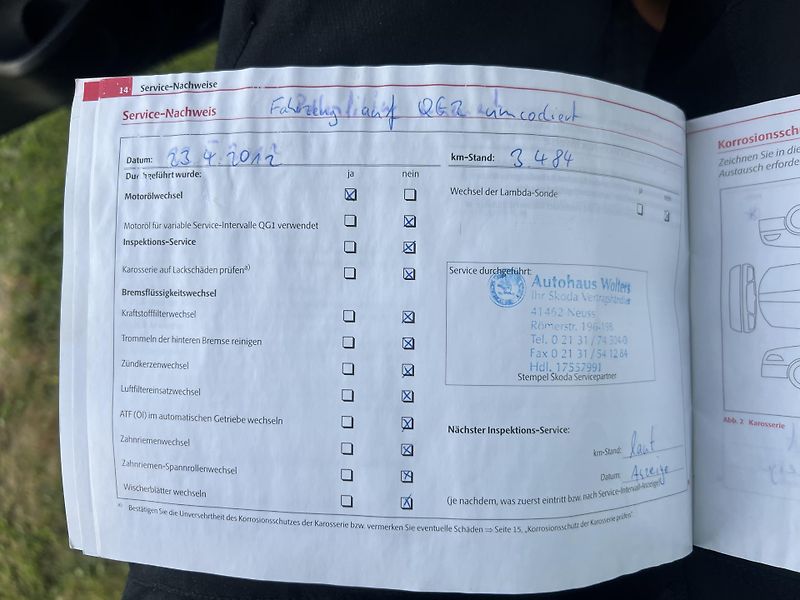 14 Service-Nachweise
Service-Nachweis Fahrzeug auf QG2 umcodiert
Datum: 23.4.2012 km-Stand: 3.484
Durchgeführt wurde: ja nein
Motorölwechsel
Wechsel der Lambda-Sonde
Motoröl für variable Service-Intervalle QG1 verwendet
Inspektions-Service
Karosserie auf Lackschäden prüfen a)
Bremsflüssigkeitswechsel
Kraftstofffilterwechsel
Trommeln der hinteren Bremse reinigen
Zündkerzenwechsel
Luftfiltereinsatzwechsel
ATF (Öl) im automatischen Getriebe wechseln
Zahnriemenwechsel
Zahnriemen-Spannrollenwechsel
Wischerblätter wechseln
Service durchgeführt:
Autohaus Wolters
Ihr Skoda Vertragshändler
41462 Neuss
Römerstr. 196-198
Tel. 0 21 31 / 74 304-0
Fax 0 21 31 / 54 12 84
Hdl. 17557991
Stempel Skoda Servicepartner
Nächster Inspektions-Service:
km-Stand: laut
Datum: Anzeige
(je nachdem, was zuerst eintritt bzw. nach Service-Intervall-Anzeige)
a) Bestätigen Sie die Unversehrtheit des Korrosionsschutzes der Karosserie bzw. vermerken Sie eventuelle Schäden ⇒ Seite 15, „Korrosionsschutz der Karosserie prüfen".
Korrosionssch
Zeichnen Sie in die
Austausch erforde
Abb. 2 Karosserie